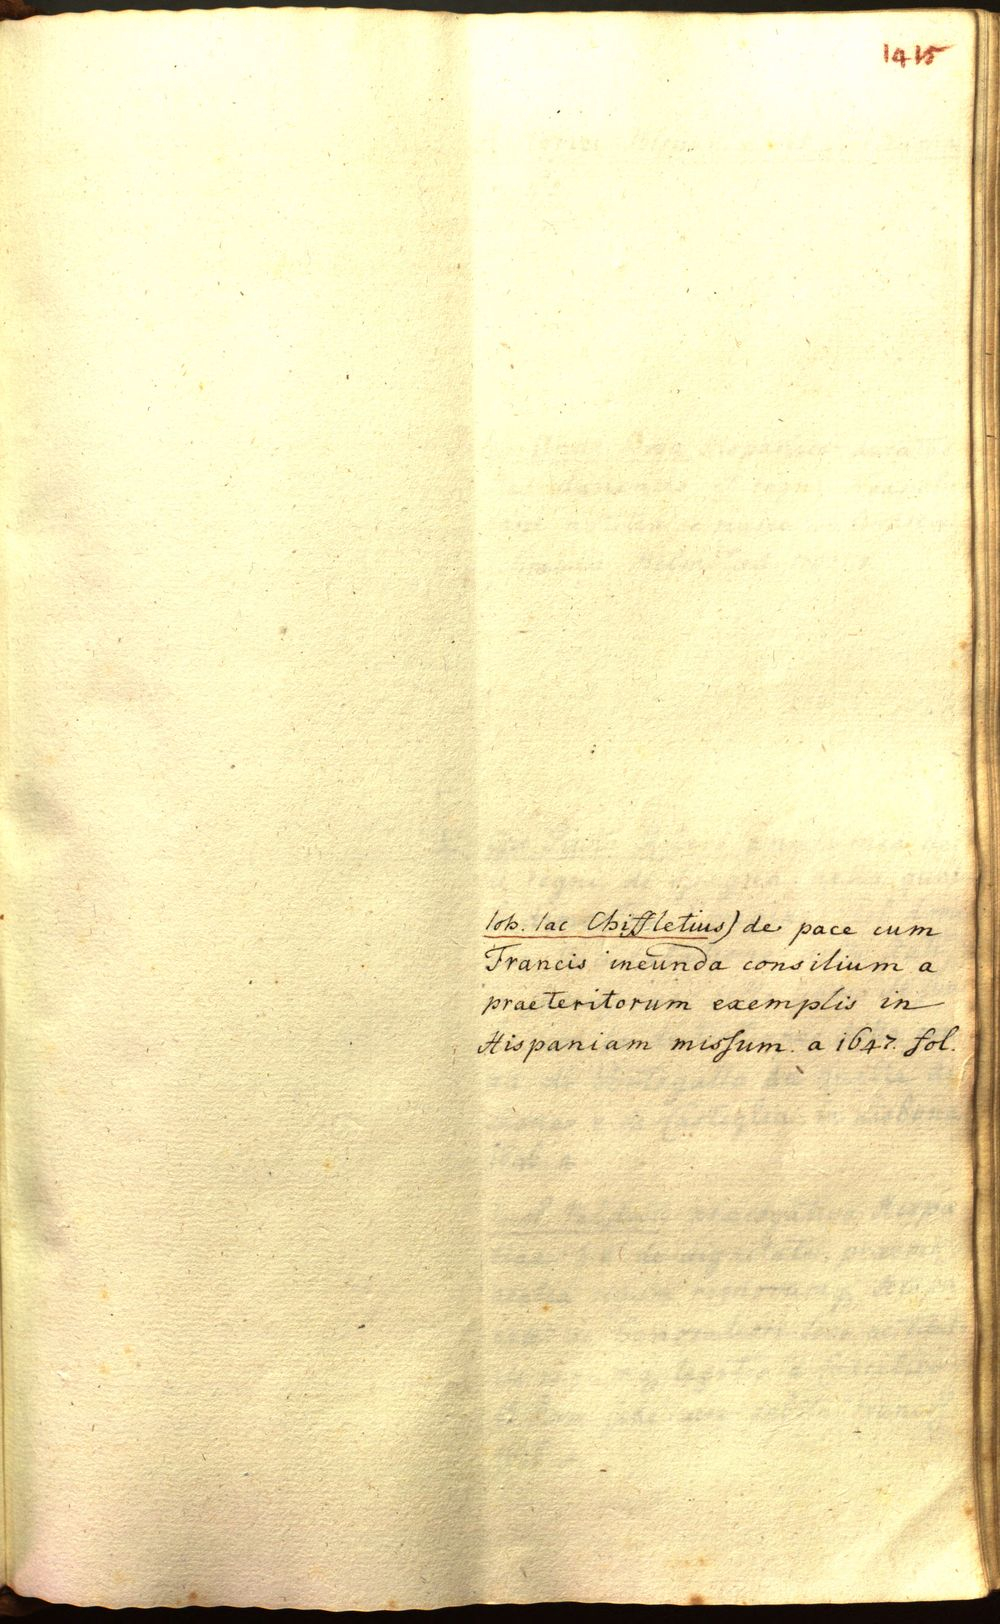 1415
Ioh. Iac Chiffletius) de pace cum
Francis ineunda consilium a
praeteritorum exemplis in
Hispaniam missum. a 1647. fol.